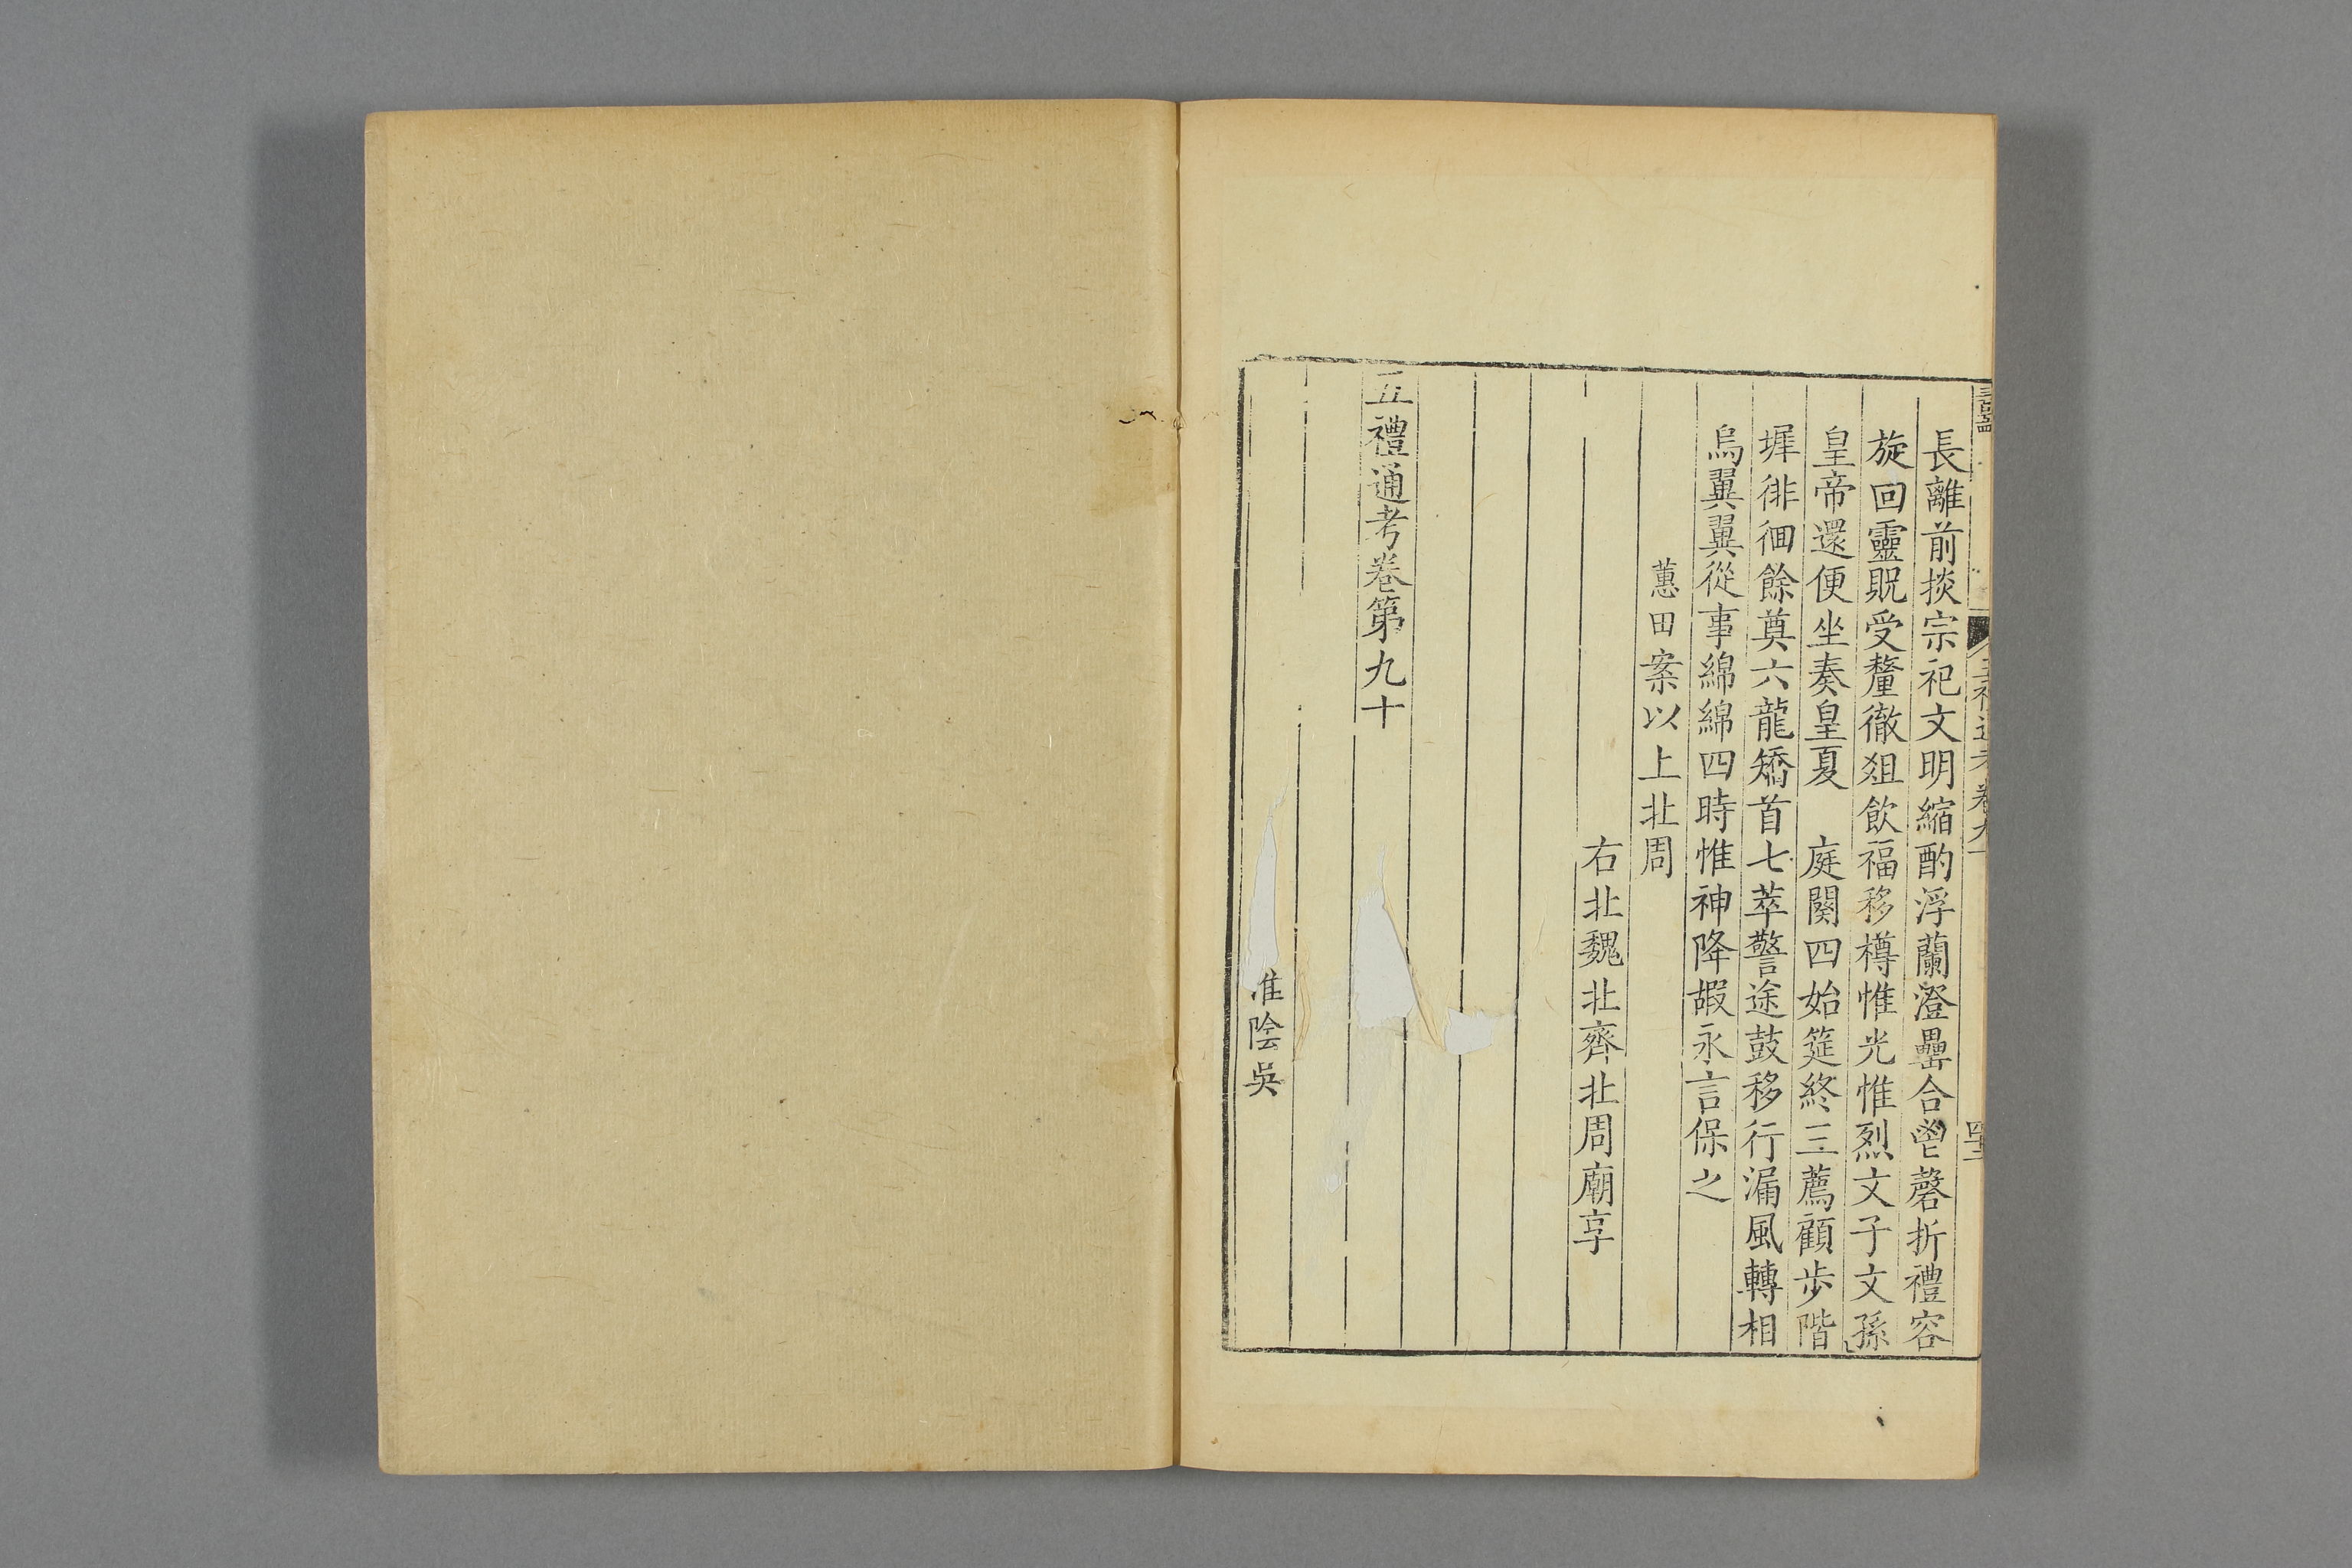 長離前掞宗祀文明縮酌浮蘭澄罍合鬯磬折禮容
旋回靈貺受釐徹俎飲福移樽惟光惟烈文子文孫
皇帝還便坐奏皇夏　庭闋四始筵終三薦顧步階
墀徘徊餘奠六龍矯首七萃警途鼓移行漏風轉相
烏翼翼從事綿綿四時惟神降嘏永言保之
蕙田案以上北周
右北魏北齊北周廟享
五禮通考卷第九十
淮陰吳